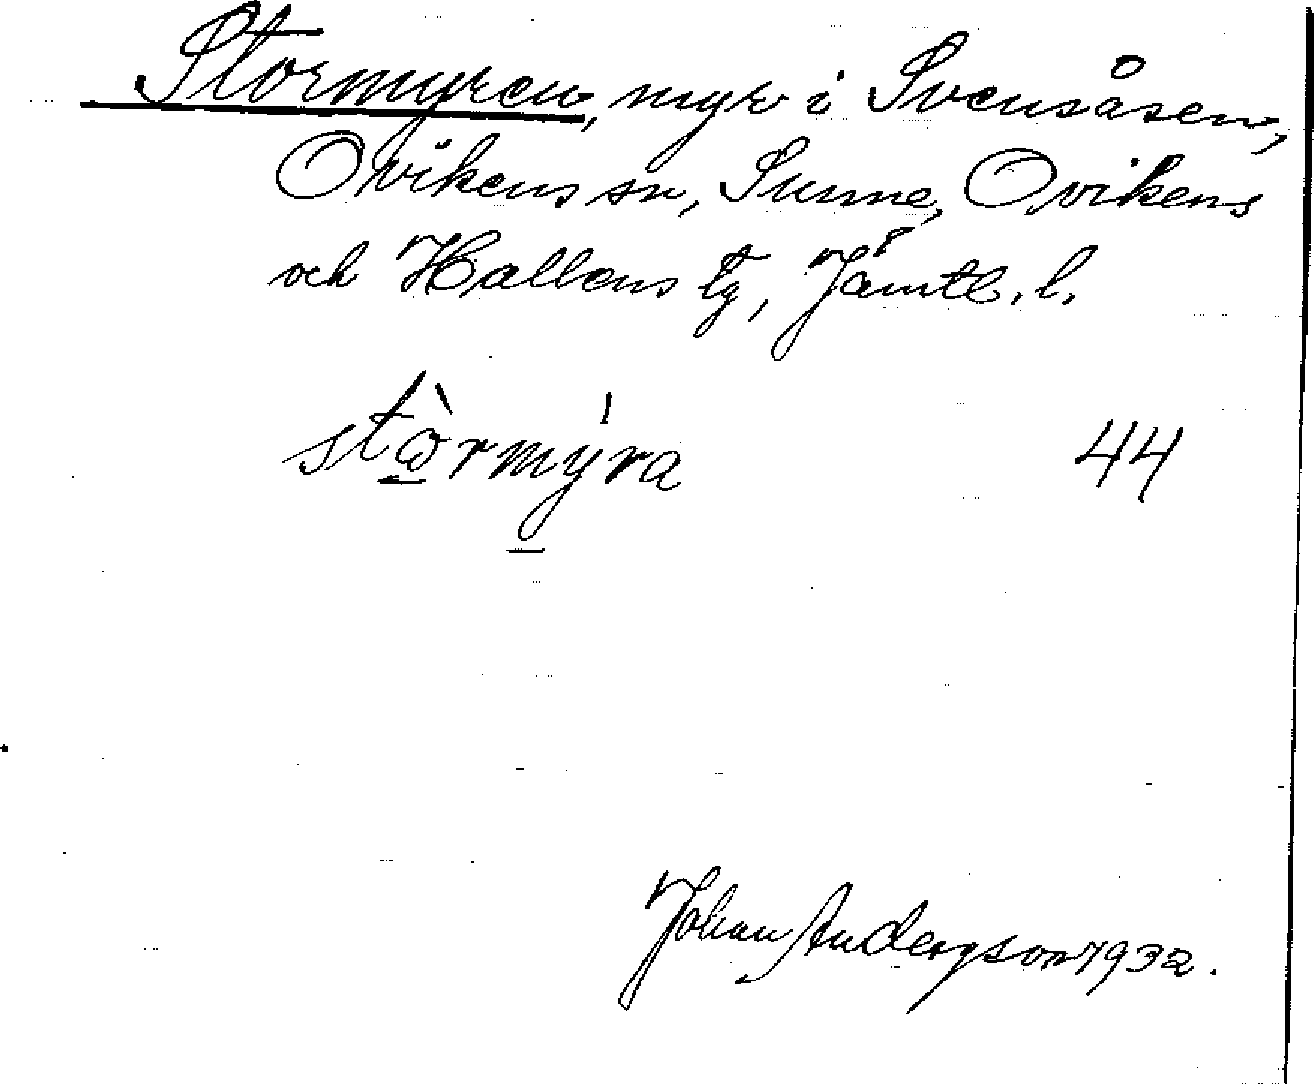 Stormyren, myr i Svensåsen,
Ovikens sn, Sunne, Ovikens
och Hallens tg, Jämtl. l.
stòrmýra 44
Johan Andersson 1932.